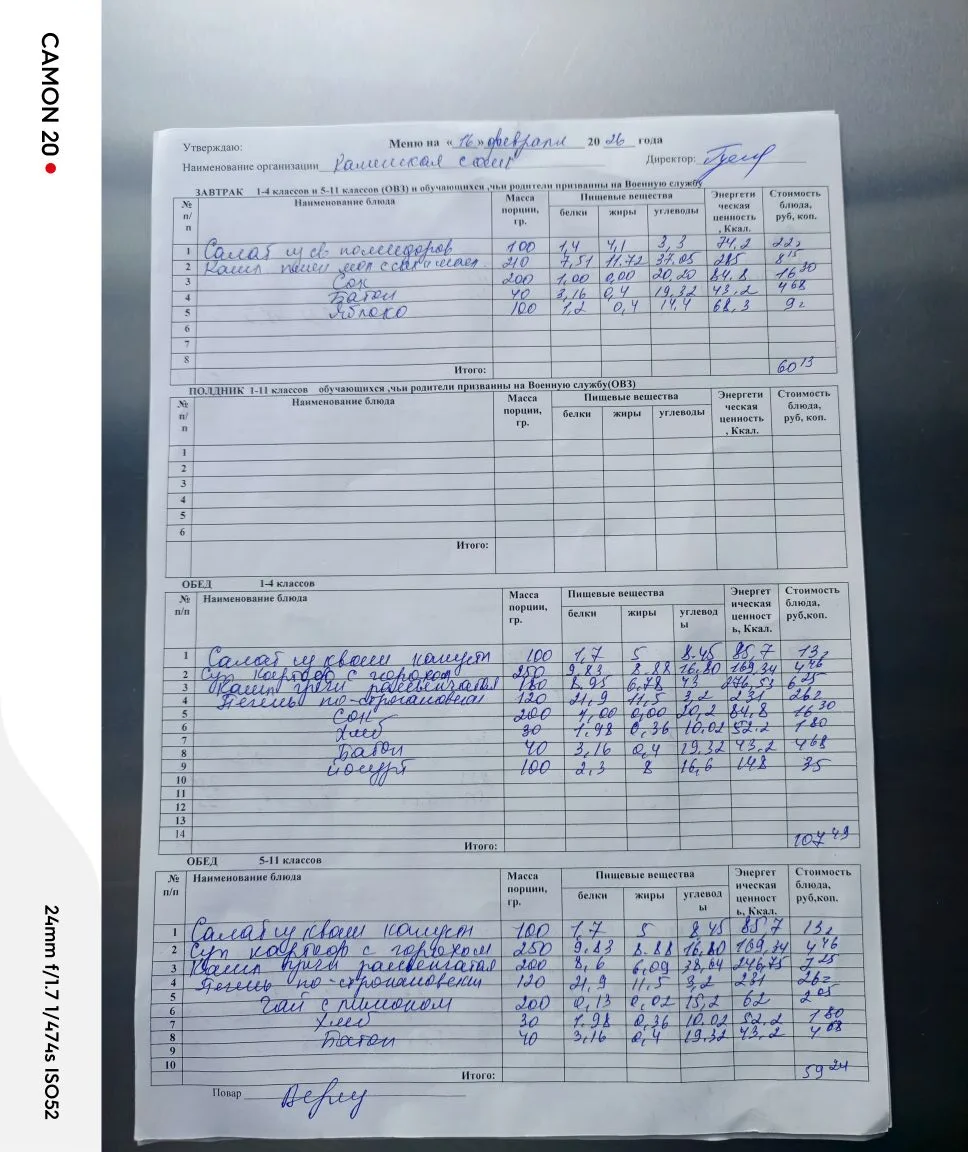 CAMON 20
24mm f/1.7 1/474s ISO52
Утверждаю: Меню на « 16 » февраля 20 26 года
Наименование организации Каменская Директор:
ЗАВТРАК 1-4 классов и 5-11 классов (ОВЗ) и обучающихся ,чьи родители призванны на Военную службу
№ п/п Наименование блюда Масса порции, гр. Пищевые вещества Энергетическая ценность, Ккал. Стоимость блюда, руб, коп.
белки жиры углеводы
1 Салат из св помидоров 100 1,4 4,1 3,3 74,2 22
2 Каша 210 7,51 11,72 37,05 285 8 15
3 Сок 200 1,00 0,00 20,20 84,8 16 30
4 Батон 40 3,16 0,4 19,32 43,2 4 68
5 Яблоко 100 1,2 0,4 14,4 68,3 9
6
7
8
Итого: 60 13
ПОЛДНИК 1-11 классов обучающихся ,чьи родители призванны на Военную службу(ОВЗ)
№ п/п Наименование блюда Масса порции, гр. Пищевые вещества Энергетическая ценность, Ккал. Стоимость блюда, руб, коп.
белки жиры углеводы
1
2
3
4
5
6
Итого:
ОБЕД 1-4 классов
№ п/п Наименование блюда Масса порции, гр. Пищевые вещества Энергетическая ценность, Ккал. Стоимость блюда, руб,коп.
белки жиры углеводы
1 Салат из кваш капусты 100 1,7 5 8.45 85,7 13
2 Суп картоф с горохом 250 9.83 8.88 16,80 169,34 4 46
3 Каша гречн рассыпчатая 180 8.95 6,78 43 276,53 6 25
4 Печень по-строгановски 120 21,9 11,5 3,2 231 26
5 Сок 200 1,00 0,00 20,2 84,8 16 30
6
7 Хлеб 30 1.98 0,36 10.02 52.2 1 80
8 Батон 40 3,16 0,4 19.32 43,2 4 68
9 йогурт 100 2,3 8 16,6 148 35
10
11
12
13
14
Итого: 107 49
ОБЕД 5-11 классов
№ п/п Наименование блюда Масса порции, гр. Пищевые вещества Энергетическая ценность, Ккал. Стоимость блюда, руб,коп.
белки жиры углеводы
1 Салат из кваш капусты 100 1.7 5 8,45 85,7 13
2 Суп картоф с горохом 250 9.83 8.88 16,80 169,34 4 46
3 Каша гречн рассыпчатая 200 8,6 6,09 38,64 246,75 7 25
4 Печень по-строгановски 120 21,9 11,5 3,2 231 26
5 Чай с лимоном 200 0,13 0,02 15,2 62 2 05
6
7 Хлеб 30 1.98 0,36 10.02 52.2 1 80
8 Батон 40 3,16 0,4 19.32 43,2 4 68
9
10
Итого: 59 24
Повар